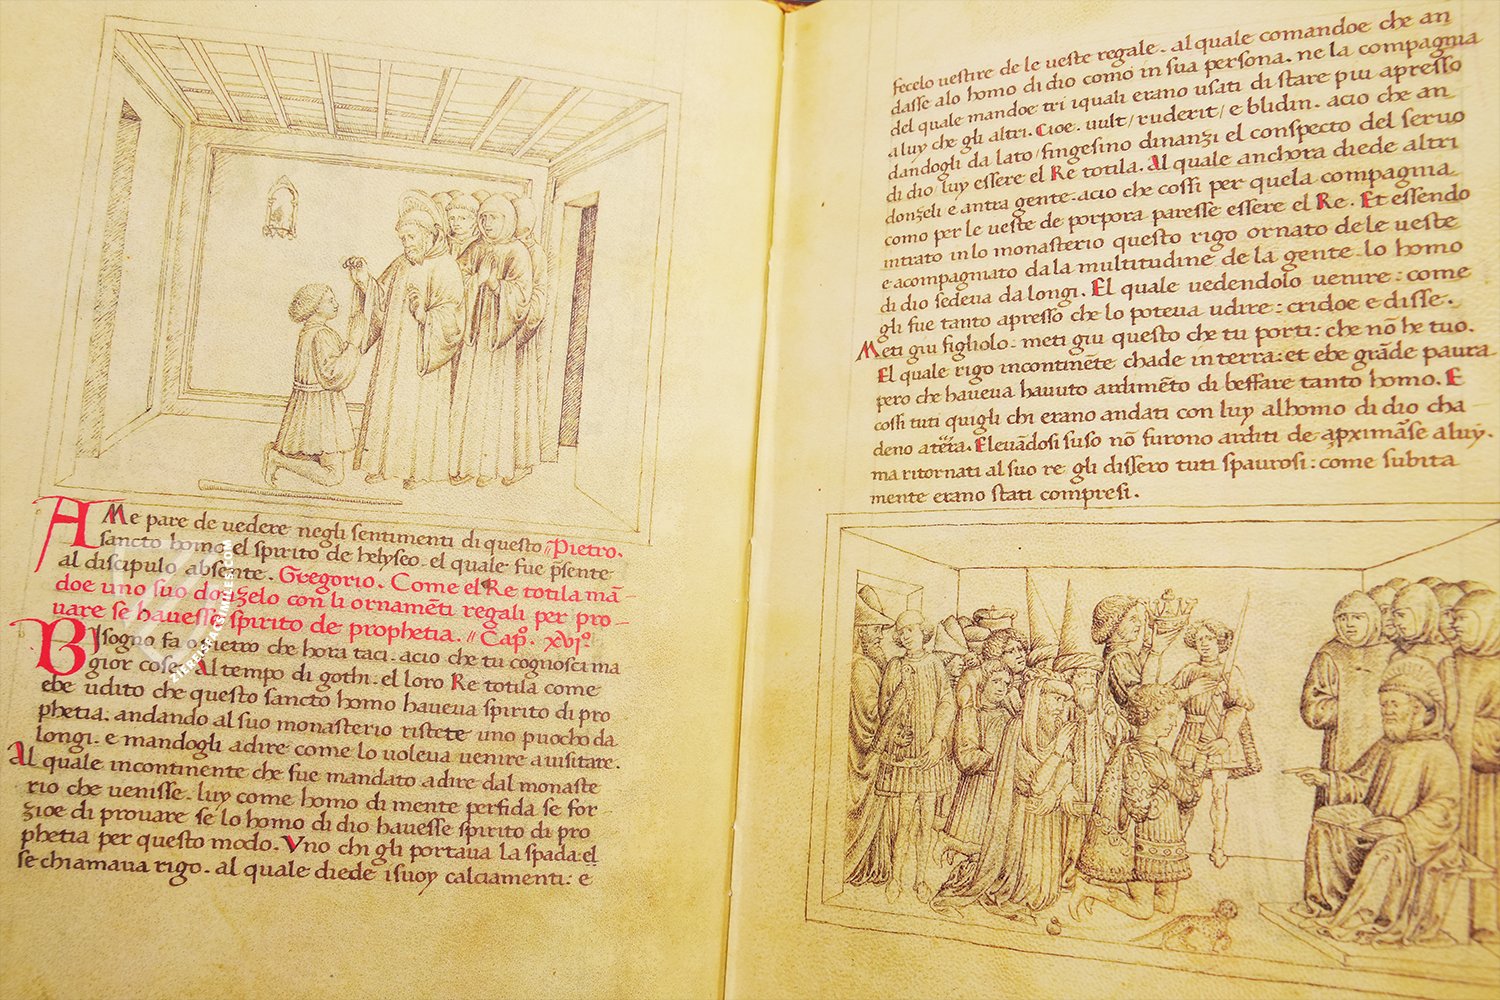 A Me pare de vedere negli sentimenti di questo // Pietro.
sancto homo el spirito de helyseo. el quale fue p̄sente
al discipulo absente. Gregorio. Come el Re totila mā-
doe uno suo donzelo con li ornamēti regali per pro-
uare se hauesse spirito de prophetia. // Capº. xviº.
BIsogno fa o pietro che hora taci. acio che tu cognosci ma
gior cose. Al tempo di gothi. el loro Re totila come
ebe udito che questo sancto homo haueua spirito di pro
phetia. andando al suo monasterio ristete uno puocho da
longi. e mandogli a dire come lo uoleua uenire a uisitare.
Al quale incontinente che fue mandato a dire dal monaste
rio che uenisse. luy come homo di mente perfida se for
zioe di prouare se lo homo di dio hauesse spirito di pro
phetia per questo modo. Vno chi gli portaua la spada: el
se chiamaua rigo. al quale diede i suoy calciamenti: e
ZIEREISFACSIMILES.COM
fecelo uestire de le ueste regale. al quale comandoe che an
dasse alo homo di dio como in sua persona. ne la compagnia
del quale mandoe tri i quali erano usati di stare piu apresso
a luy che gli altri. Cioe. uult / ruderit / e blidin. acio che an
dandogli da lato / fingesino dinanzi el conspecto del seruo
di dio luy essere el Re totila. Al quale anchora diede altri
donzeli e antra gente. acio che cossi per quela compagnia
como per le ueste de porpora paresse essere el Re. Et essendo
intrato in lo monasterio questo rigo ornato de le ueste
e acompagniato da la multitudine de la gente. lo homo
di dio sedeua da longi. El quale uedendolo uenire: come
gli fue tanto apresso che lo poteua udire: cridoe e disse.
Meti giu figliolo. meti giu questo che tu porti: che nō he tuo.
El quale rigo incontinēte chade in terra: et ebe grāde paura
pero che haueua hauuto ardimēto di beffare tanto homo. E
cossi tuti quigli chi erano andati con luy al homo di dio cha
deno a tera. Eleuādosi suso nō furono arditi de apximāse a luy.
ma ritornati al suo re gli dissero tuti spaurosi: come subita
mente erano stati compresi.